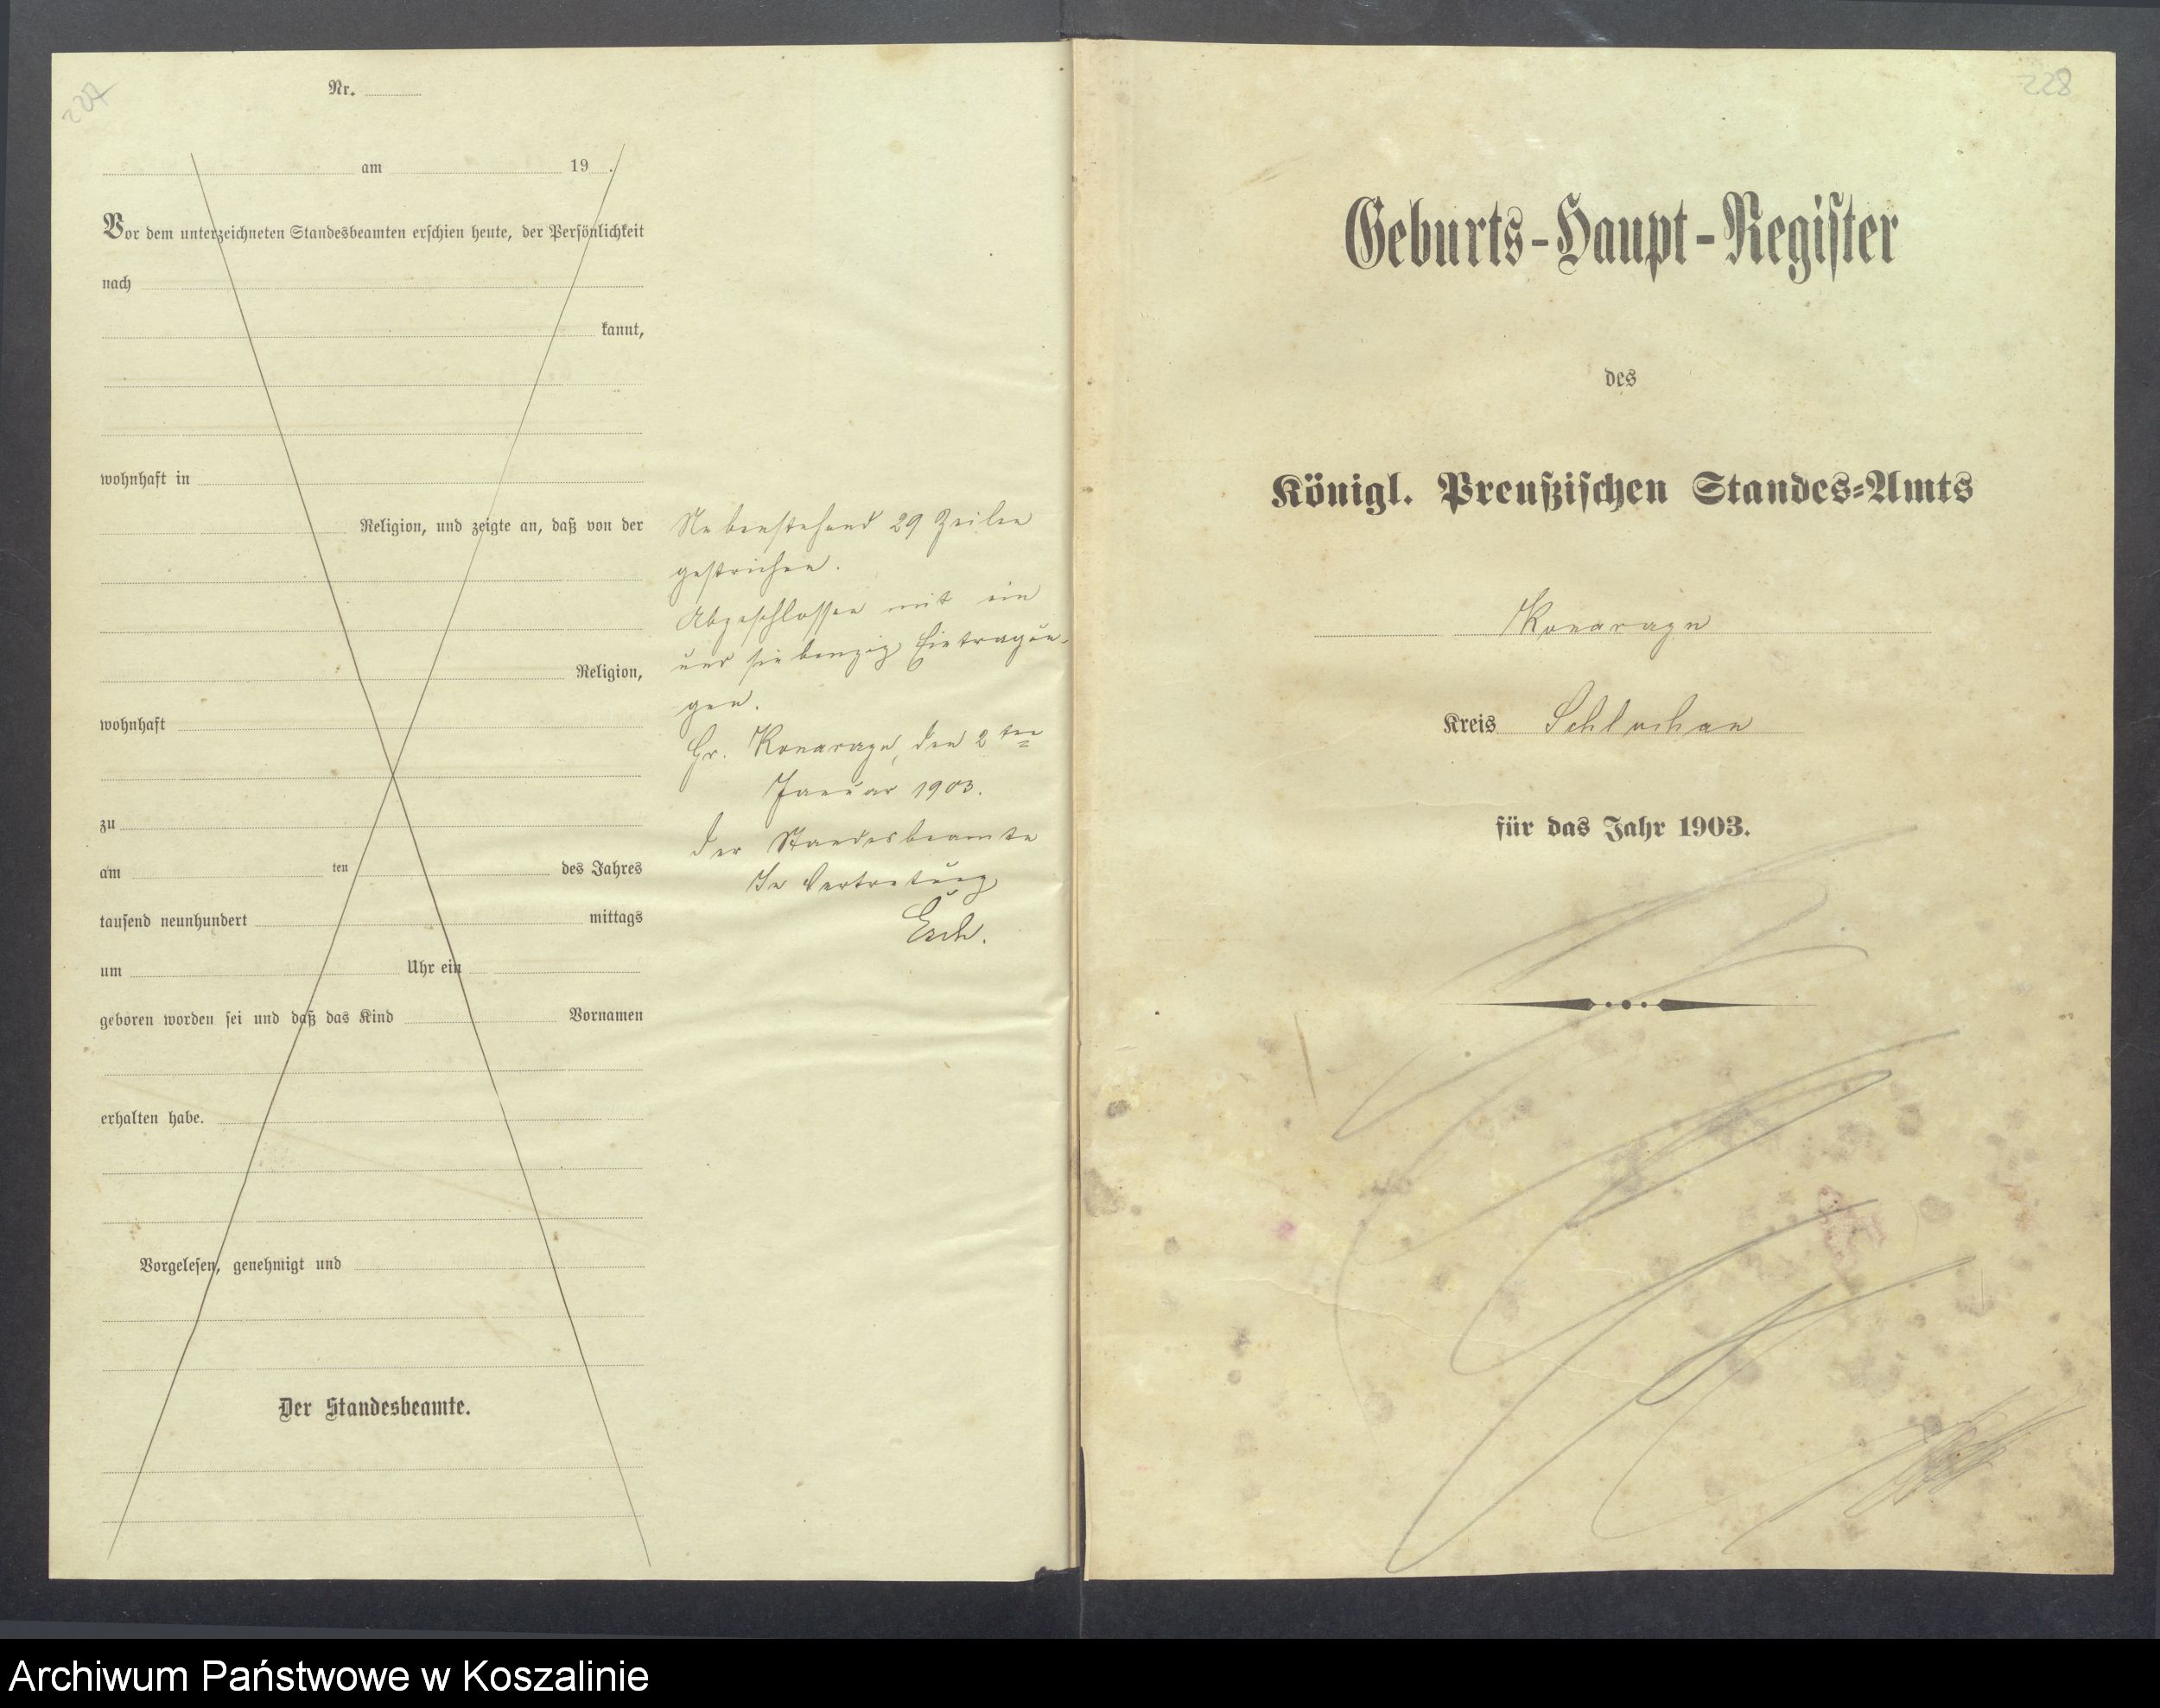 227
Nr.
am 19 .
Vor dem unterzeichneten Standesbeamten erschien heute, der Persönlichkeit
nach
kannt,
wohnhaft in
Religion, und zeigte an, daß von der
Religion,
wohnhaft
zu
am ten des Jahres
tausend neunhundert mittags
um Uhr ein
geboren worden sei und daß das Kind Vornamen
erhalten habe.
Vorgelesen, genehmigt und
Der Standesbeamte.
Nebenstehend 29 Zeilen
gestrichen.
Abgeschlossen mit ein
und siebenzig Eintragun-
gen.
Gr. Konarzyn, den 2ten
Januar 1903.
Der Standesbeamte
In Vertretung
228
Geburts-Haupt-Register
des
Königl. Preußischen Standes-Amts
Konarzyn
Kreis Schlochau
für das Jahr 1903.
Archiwum Państwowe w Koszalinie